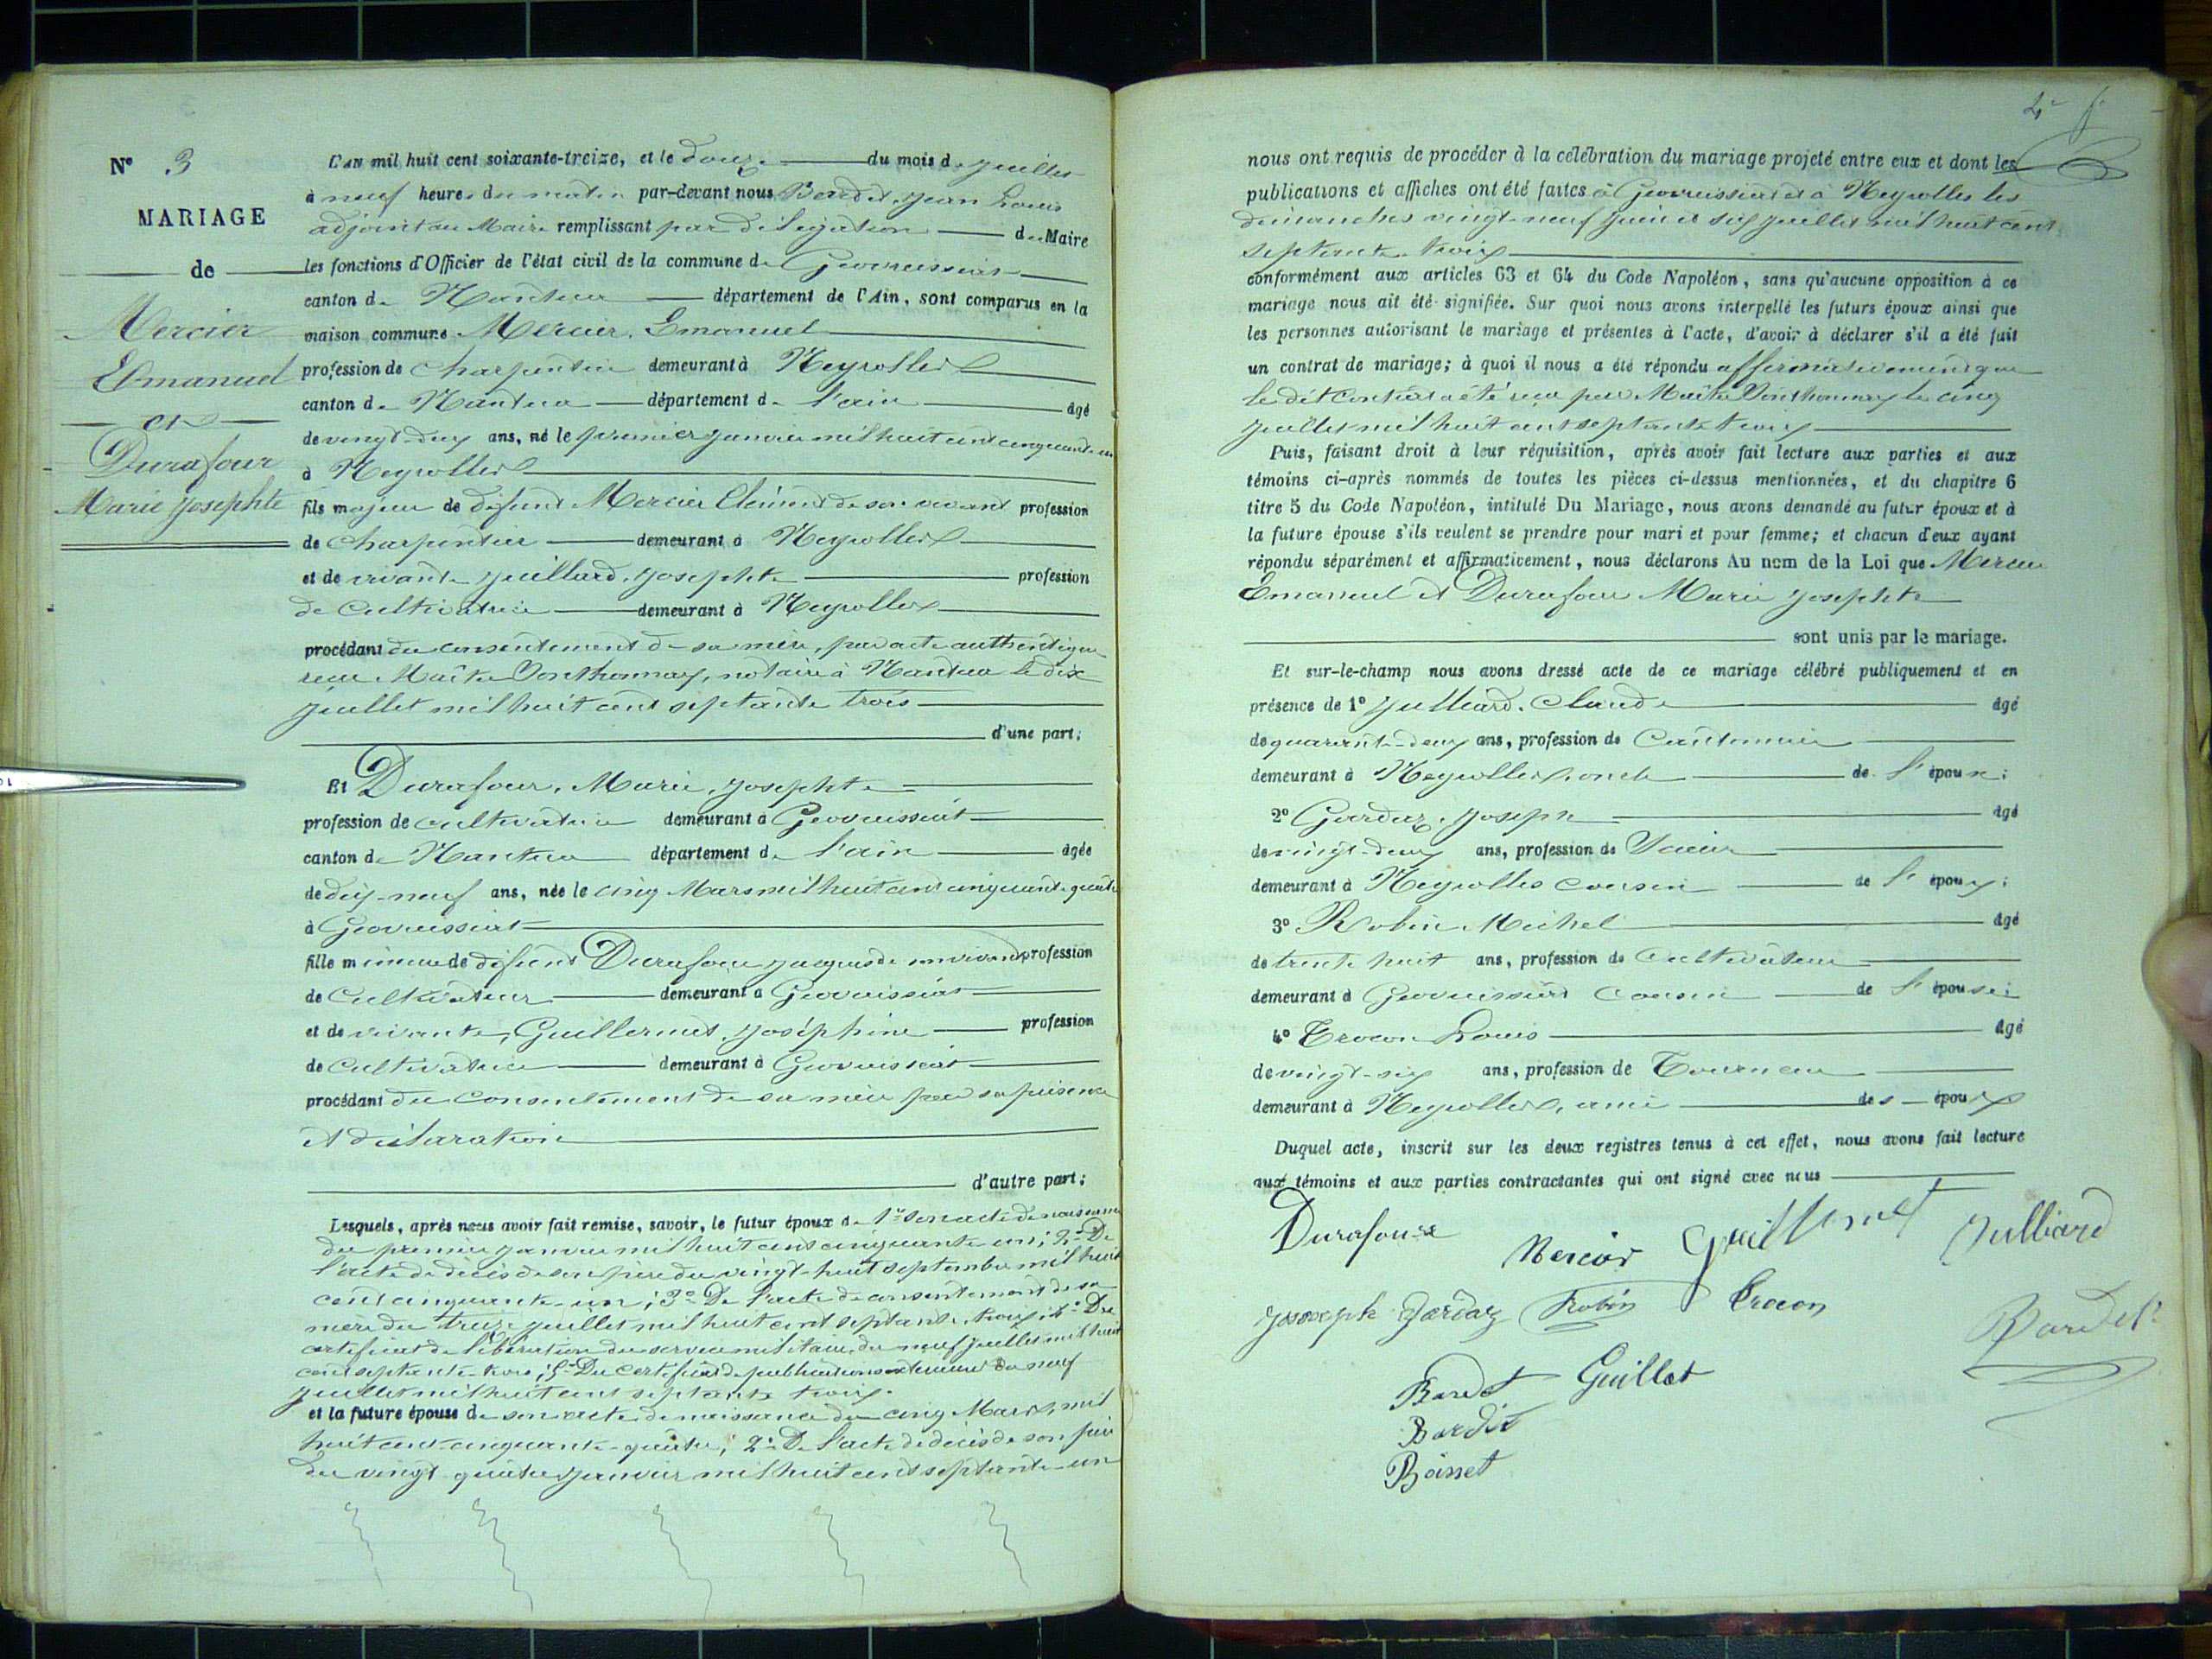 N° 3
MARIAGE
de
Mercier
Emanuel
et
Durafour
Marie Josephte
L'an mil huit cent soixante-treize, et le douze du mois de juillet
à neuf heures du matin par-devant nous Bordet, Jean Louis
adjoint au Maire remplissant par délégation du Maire
les fonctions d'Officier de l'état civil de la commune de Geovreissiat
canton de Nantua département de l'Ain, sont comparus en la
maison commune Mercier, Emanuel
profession de charpentier demeurant à Neyrolles
canton de Nantua département de l'ain âgé
de vingt-deux ans, né le premier janvier mil huit cent cinquante un
à Neyrolles
fils majeur de défunt Mercier Clément de son vivant profession
de charpentier demeurant à Neyrolles
et de vivante Juillard, Josephte profession
de cultivatrice demeurant à Neyrolles
procédant du consentement de sa mère, par acte authentique
reçu Maître Vonthonnay, notaire à Nantua le dix
juillet mil huit cent septante trois
d'une part;
Et Durafour, Marie, Josephte
profession de cultivatrice demeurant à Geovreissiat
canton de Nantua département de l'ain âgée
de dix-neuf ans, née le cinq Mars mil huit cent cinquante-quatre
à Geovreissiat
fille mineure de défunt Durafour Jacques de son vivant profession
de Cultivateur demeurant à Geovreissiat
et de vivante, Guillermet, Joséphine profession
de Cultivatrice demeurant à Geovreissiat
procédant du consentement de sa mère par sa présence
et déclaration
d'autre part;
Lesquels, après nous avoir fait remise, savoir, le futur époux de 1° son acte de naissance
du premier janvier mil huit cent cinquante un; 2° De
l'acte de décès de son père du vingt-huit septembre mil huit
cent cinquante-un; 3° De l'acte de consentement de sa
mère du treize juillet mil huit cent septante trois; 4° Du
certificat de libération du service militaire, du neuf juillet mil huit
cent septante-trois; 5° Du certificat de publications du neuf
juillet mil huit cent septante trois.
et la future épouse de son acte de naissance du cinq Mars, mil
huit cent cinquante-quatre; 2° De l'acte de décès de son père
du vingt-quatre janvier mil huit cent septante-un
nous ont requis de procéder à la célébration du mariage projeté entre eux et dont les
publications et affiches ont été faites à Geovreissiat et à Neyrolles les
dimanches vingt-neuf juin et six juillet mil huit cent
septante trois
conformément aux articles 63 et 64 du Code Napoléon, sans qu'aucune opposition à ce
mariage nous ait été signifiée. Sur quoi nous avons interpellé les futurs époux ainsi que
les personnes autorisant le mariage et présentes à l'acte, d'avoir à déclarer s'il a été fait
un contrat de mariage; à quoi il nous a été répondu affirmativement que
le dit contrat a été reçu par Maître Vonthonnay le cinq
juillet mil huit cent septante trois
Puis, faisant droit à leur réquisition, après avoir fait lecture aux parties et aux
témoins ci-après nommés de toutes les pièces ci-dessus mentionnées, et du chapitre 6
titre 5 du Code Napoléon, intitulé Du Mariage, nous avons demandé au futur époux et à
la future épouse s'ils veulent se prendre pour mari et pour femme; et chacun d'eux ayant
répondu séparément et affirmativement, nous déclarons Au nom de la Loi que Mercier
Emanuel et Durafour Marie Josephte
sont unis par le mariage.
Et sur-le-champ nous avons dressé acte de ce mariage célébré publiquement et en
présence de 1° Julliard, Claude âgé
de quarante-deux ans, profession de Cantonnier
demeurant à Neyrolles, oncle de l'époux;
2° Gardaz, Joseph âgé
de vingt-deux ans, profession de Scieur
demeurant à Neyrolles cousin de l'époux;
3° Robin Michel âgé
de trente huit ans, profession de Cultivateur
demeurant à Geovreissiat cousin de l'épouse;
4° Crocon Louis âgé
de vingt-six ans, profession de Tourneur
demeurant à Neyrolles, ami des époux
Duquel acte, inscrit sur les deux registres tenus à cet effet, nous avons fait lecture
aux témoins et aux parties contractantes qui ont signé avec nous
Durafour Mercier Guillermet Julliard
Joseph Gardaz Robin Crocon
Bordet Guillot Bordet
Bordet
Boisset